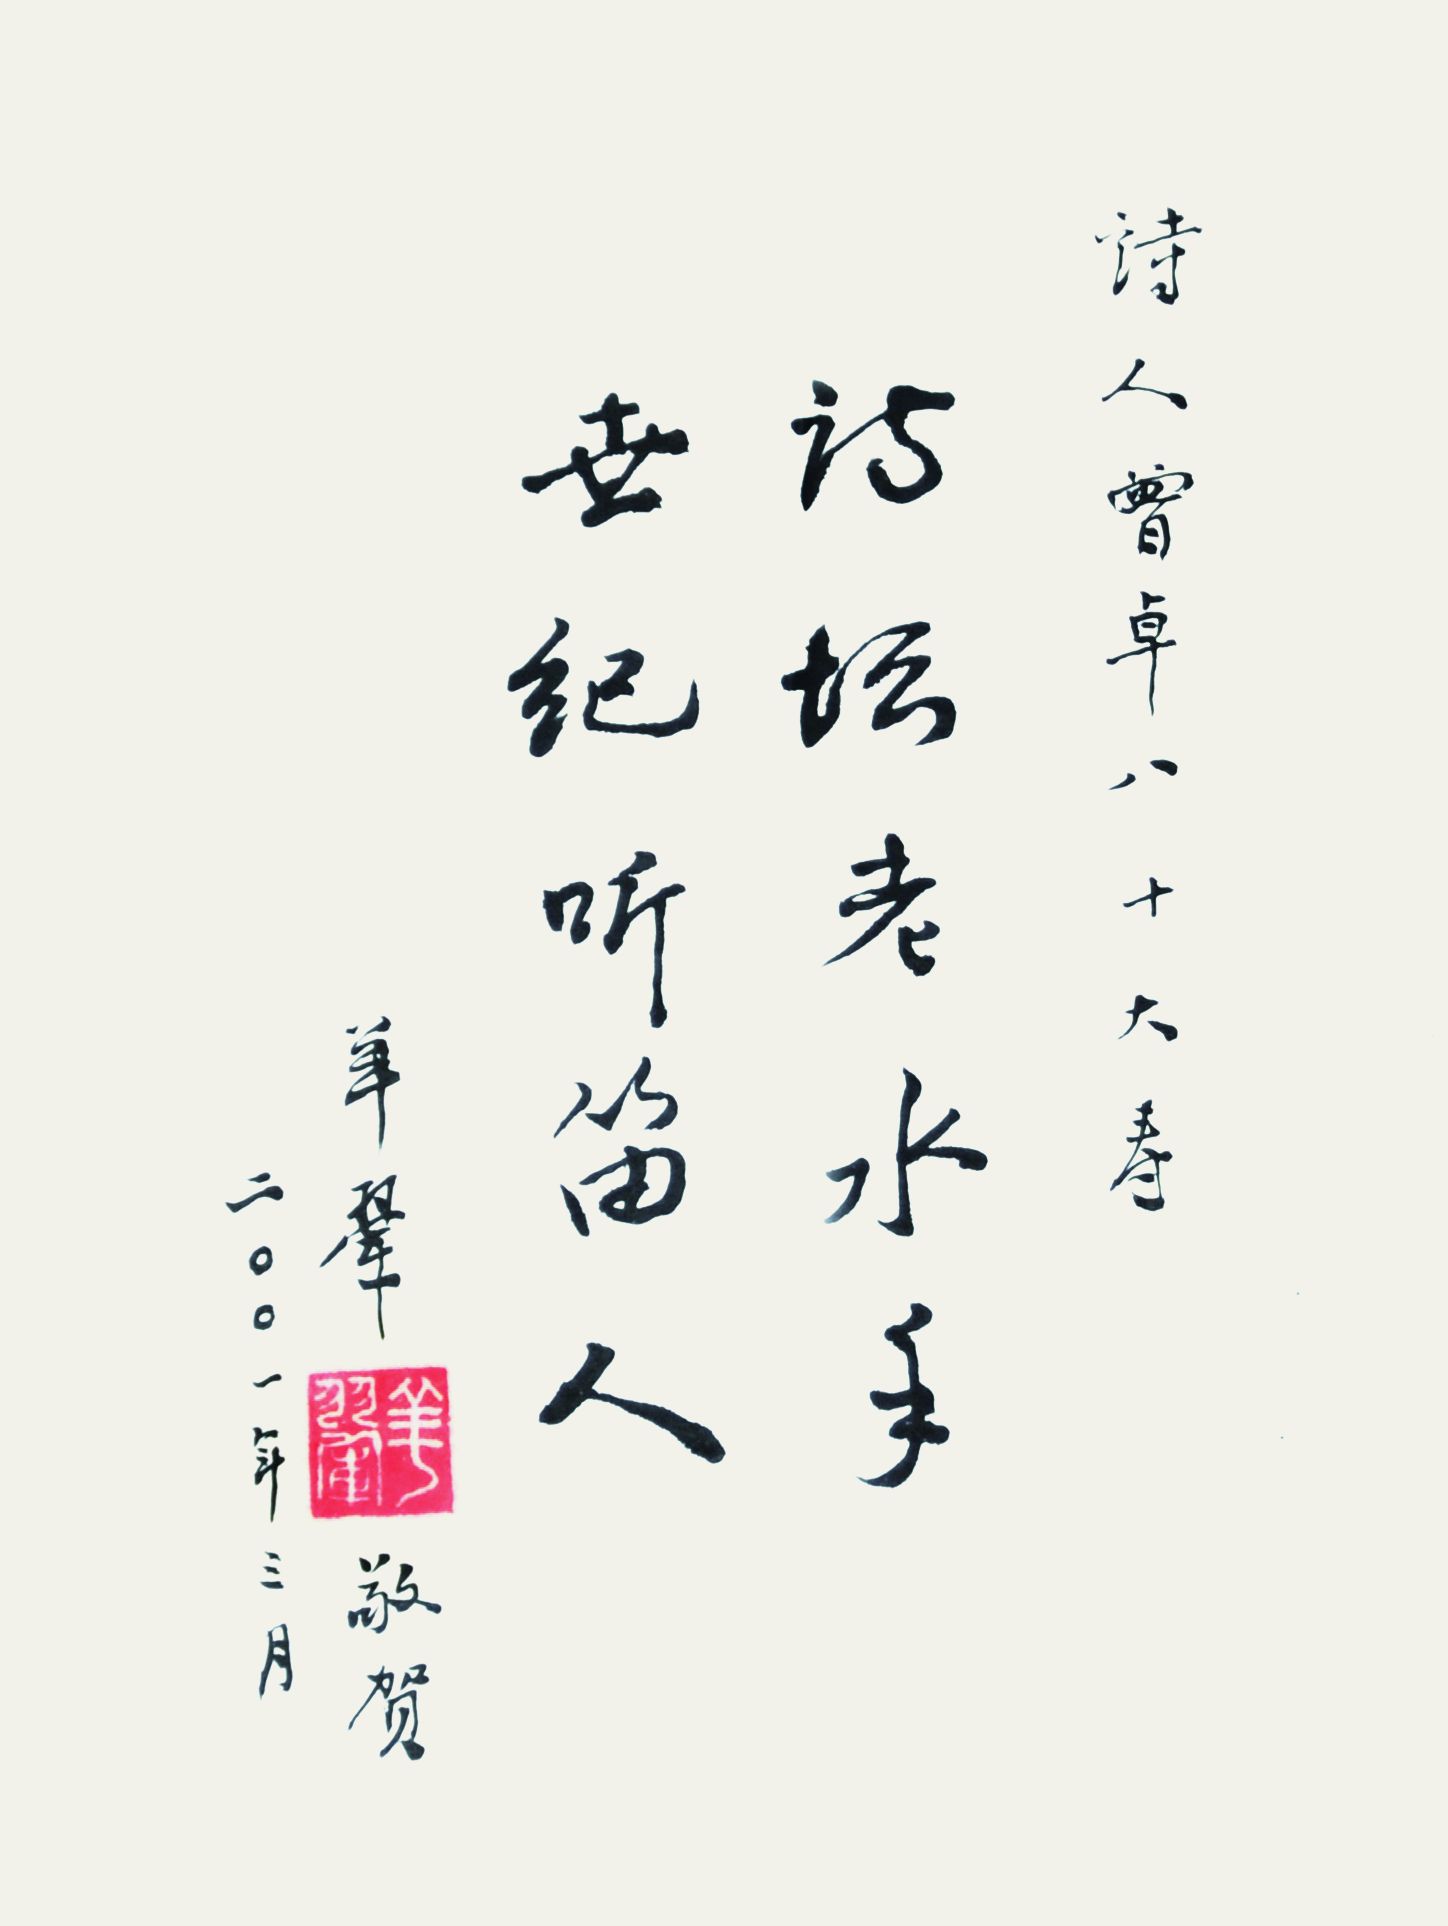 詩人曾卓八十大寿
诗坛老水手
世纪听笛人
羊翚
羊翬
敬贺
二〇〇一年三月